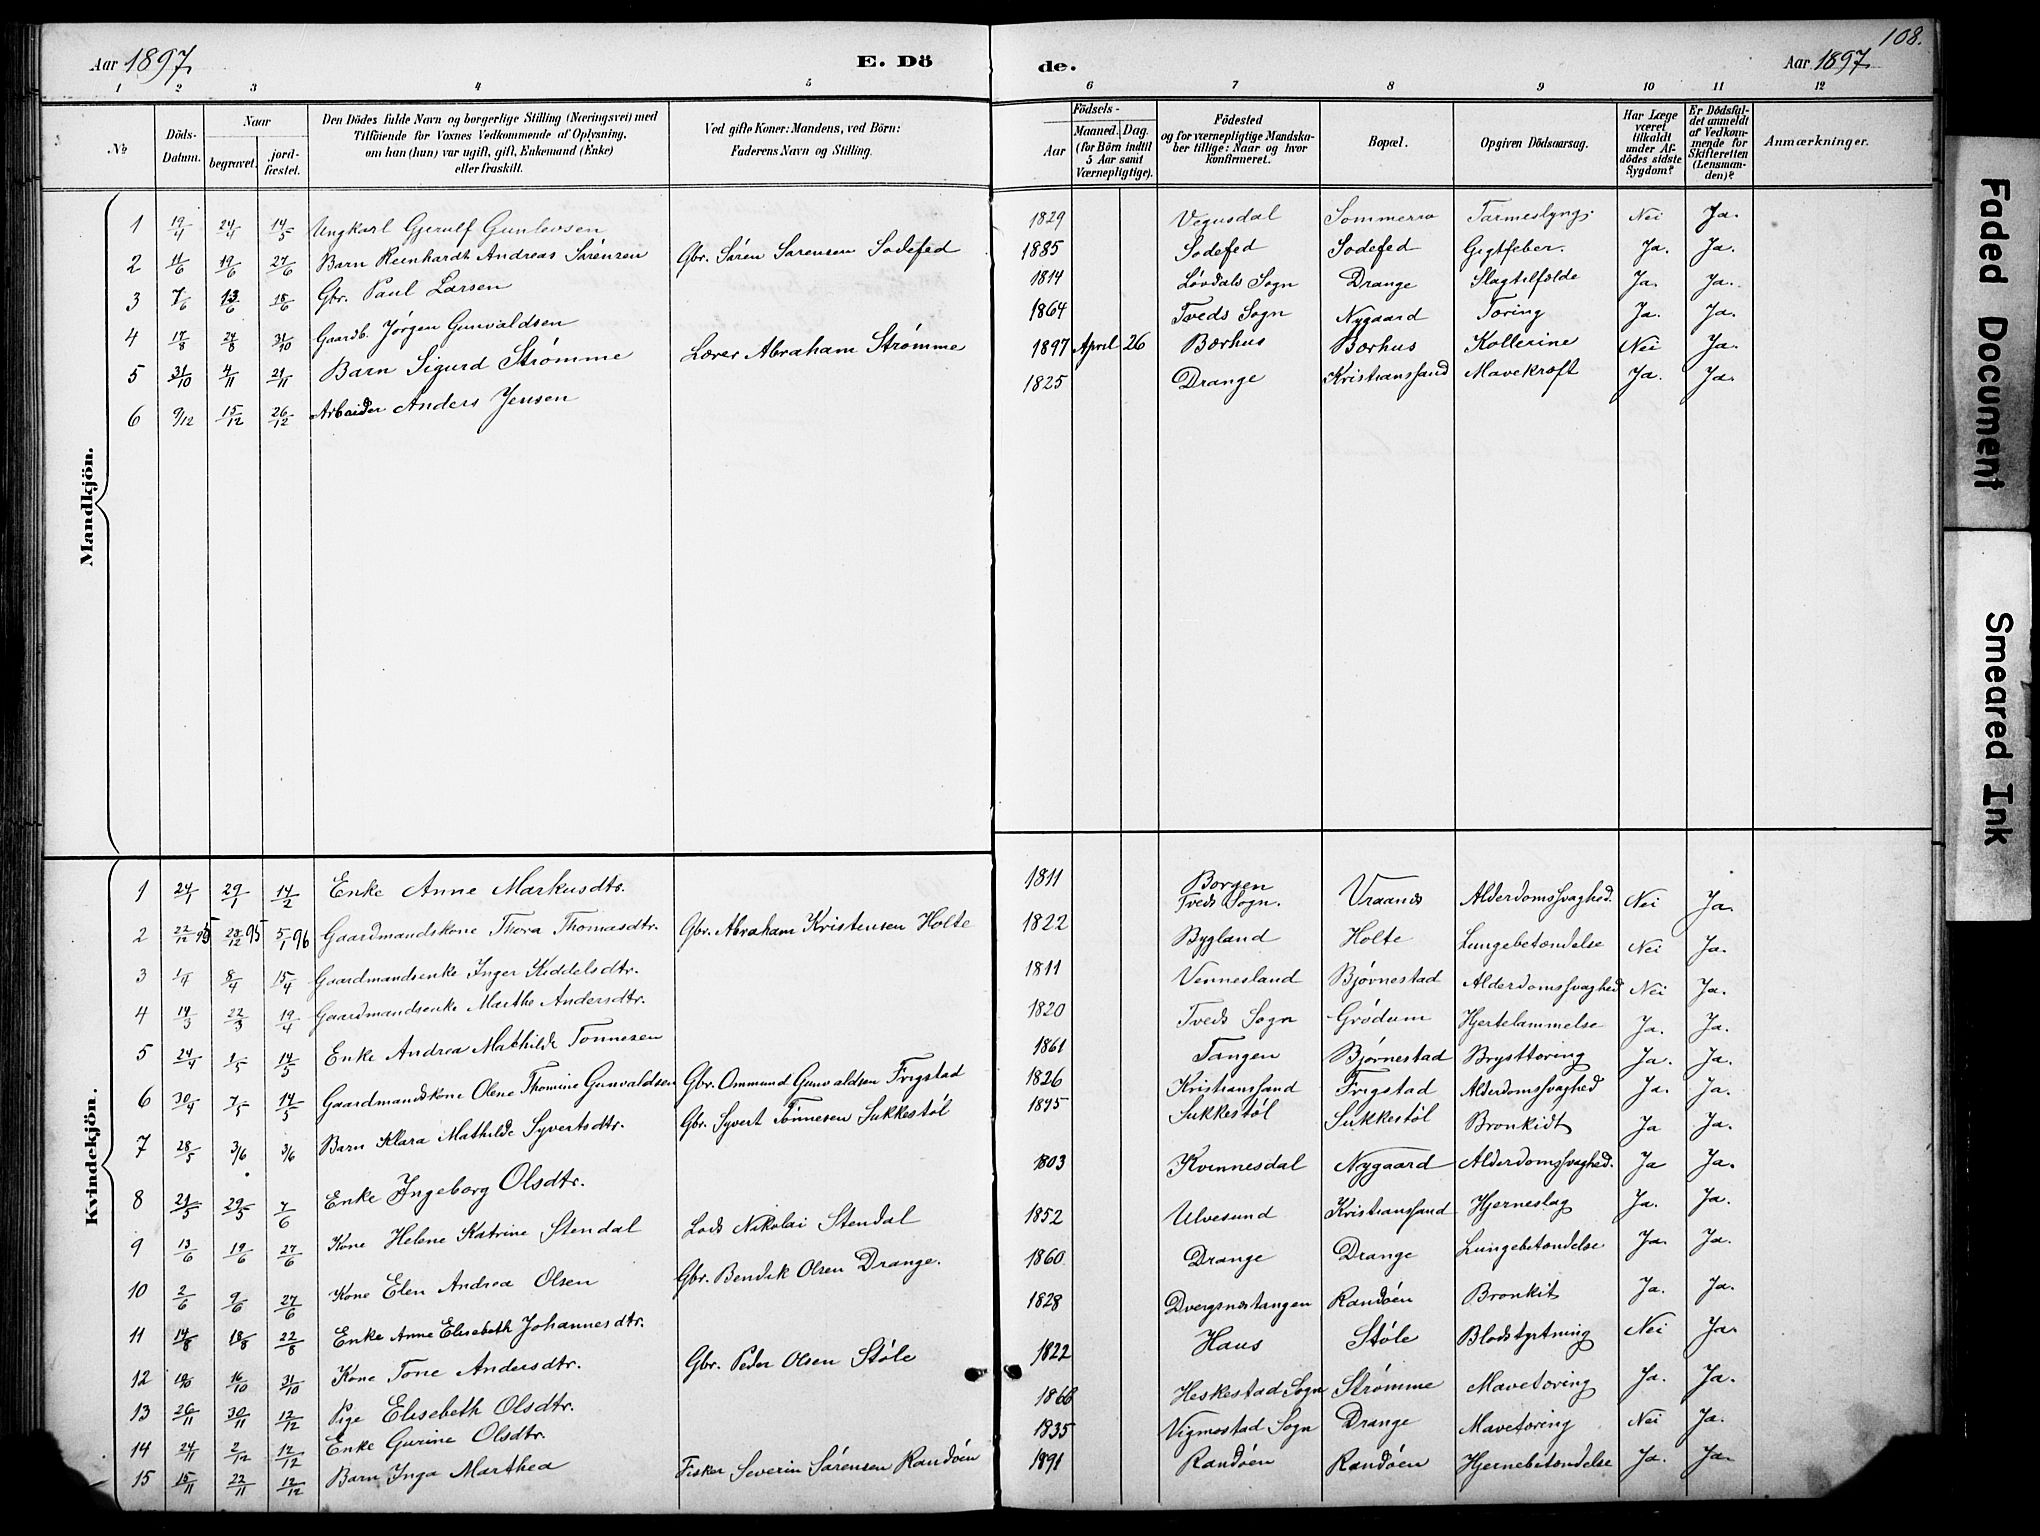 108.
Aar 1897. E. Dö de. Aar 1897
1 2 3 4 5 6 7 8 9 10 11 12
No
Döds-Datum.
Naar
begravet.
jord-fæstet.
Den Dödes fulde Navn og borgerlige Stilling (Næringsvei) med
Tilföiende for Voxnes Vedkommende af Oplysning,
om han (hun) var ugift, gift, Enkemand (Enke)
eller fraskilt.
Ved gifte Koner: Mandens, ved Börn:
Faderens Navn og Stilling.
Födsels-
Aar
Maaned. Dag.
(for Börn indtil
5 Aar samt
Værnepligtige).
Födested
og for værnepligtige Mandska-
ber tillige: Naar og hvor
konfirmeret.
Bopæl.
Opgiven Dödsaarsag.
Har Læge
været
tilkaldt
under Af-
dödes sidste
Sygdom?
Er Dödsfal-
det anmeldt
af Vedkom-
mende for
Skifteretten
(Lensman-
den)?
Anmærkninger.
Mandkjön.
1 19/4 24/4 14/5 Ungkarl Gjerulf Gunlevsen 1829 Vegusdal Sommerro Tarmeslyng. Nei Ja.
2 11/6 19/6 27/6 Barn Reinhardt Andreas Sørensen Gbr. Søren Sørensen Sodefed 1885 Sodefed Sodefed Gigtfeber. Ja. Ja.
3 7/6 13/6 18/6 Gbr. Paul Larsen 1814 Løvdals Sogn Drange Slagtilfælde Ja. Ja.
4 17/8 24/8 31/10 Gaardb. Jørgen Gunvaldsen 1864 Tveds Sogn Nygaard Tæring Ja. Ja.
5 31/10 4/11 21/11 Barn Sigurd Strømme Lærer Abraham Strømme 1897 April 26 Bærhus Bærhus Kollerine Nei Ja.
6 9/12 15/12 26/12 Arbeider Anders Jensen 1825 Drange Kristianssand Mavekræft Ja. Ja.
Kvindekjön.
1 24/1 29/1 14/2 Enke Anne Markusdtr. 1811 Borsen Tveds Sogn. Vraanes Alderdomssvaghed Nei Ja.
2 22/12 95 28/12 95 5/1 96 Gaardmandskone Thora Thomasdtr. Gbr. Abraham Kristensen Holte 1822 Bygland Holte Lungebetændelse Nei Ja.
3 1/4 8/4 15/4 Gaardmandsenke Inger Kiddelsdtr. 1811 Vennesland Bjørnestad Alderdomssvaghed Nei Ja.
4 14/3 22/3 19/4 Gaardmandsenke Marthe Andersdtr. 1820 Tveds Sogn Grødum Hjertelammelse Ja. Ja.
5 24/4 1/5 14/5 Enke Andrea Mathilde Tønnesen 1861 Tangen Bjørnestad Brysttæring Ja. Ja.
6 30/4 7/5 14/5 Gaardmandskone Olene Thomine Gunvaldsen Gbr. Ommund Gunvaldsen Frigstad 1826 Kristianssand Frigstad Alderdomssvaghed Ja. Ja.
7 28/5 3/6 3/6 Barn Klara Mathilde Syvertsdtr. Gbr. Syvert Tønnesen Sukkestøl 1895 Sukkestøl Sukkestøl Bronkidt Ja Ja.
8 21/5 29/5 7/6 Enke Ingeborg Olsdtr. 1803 Kvinnesdal Nygaard Alderdomssvaghed. Ja Ja.
9 13/6 19/6 27/6 Kone Helene Katrine Stendal Lods Nikolai Stendal 1852 Ulvesund Kristianssand Hjerneslag Ja. Ja.
10 2/6 9/6 27/6 Kone Elen Andrea Olsen Gbr. Bendik Olsen Drange. 1860 Drange Drange Lungebetændelse Ja. Ja.
11 14/8 18/8 22/8 Enke Anne Elisebeth Johannesdtr. 1828 Dvergsnestangen Randøen Bronkit Ja. Ja.
12 10/10 16/10 31/10 Kone Tone Andersdtr. Gbr. Peder Olsen Støle 1822 Haus Støle Blodstyrtning Nei Ja.
13 26/11 30/11 12/12 Pige Elisebeth Olsdtr. 1866 Heskestad Sogn Strømme Mavetæring Ja. Ja.
14 24/11 2/12 12/12 Enke Gurine Olsdtr. 1835 Vigmostad Sogn Drange Mavetæring Nei Ja.
15 15/11 22/11 12/12 Barn Inga Marthea Fisker Severin Sørensen Randøen 1891 Randøen Randøen Hjernebetændelse Ja. Ja.
Faded Document
Smeared Ink